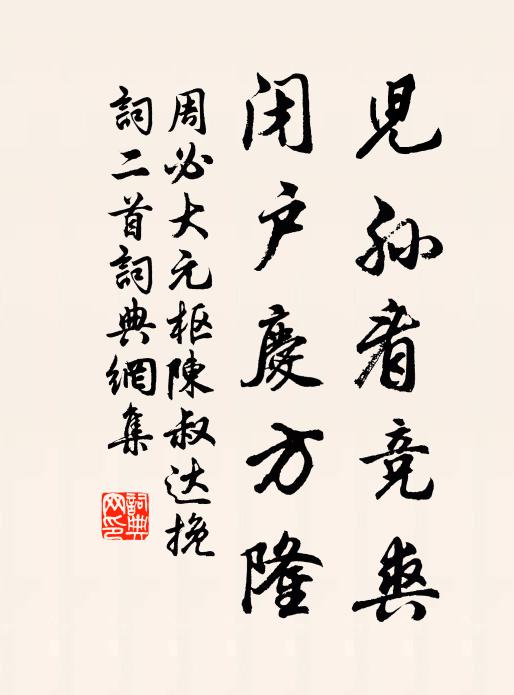 児孫看竞爽
闭户慶方隆
周必大元枢陳叔达挽
詞二首詞典網集
詞典网印